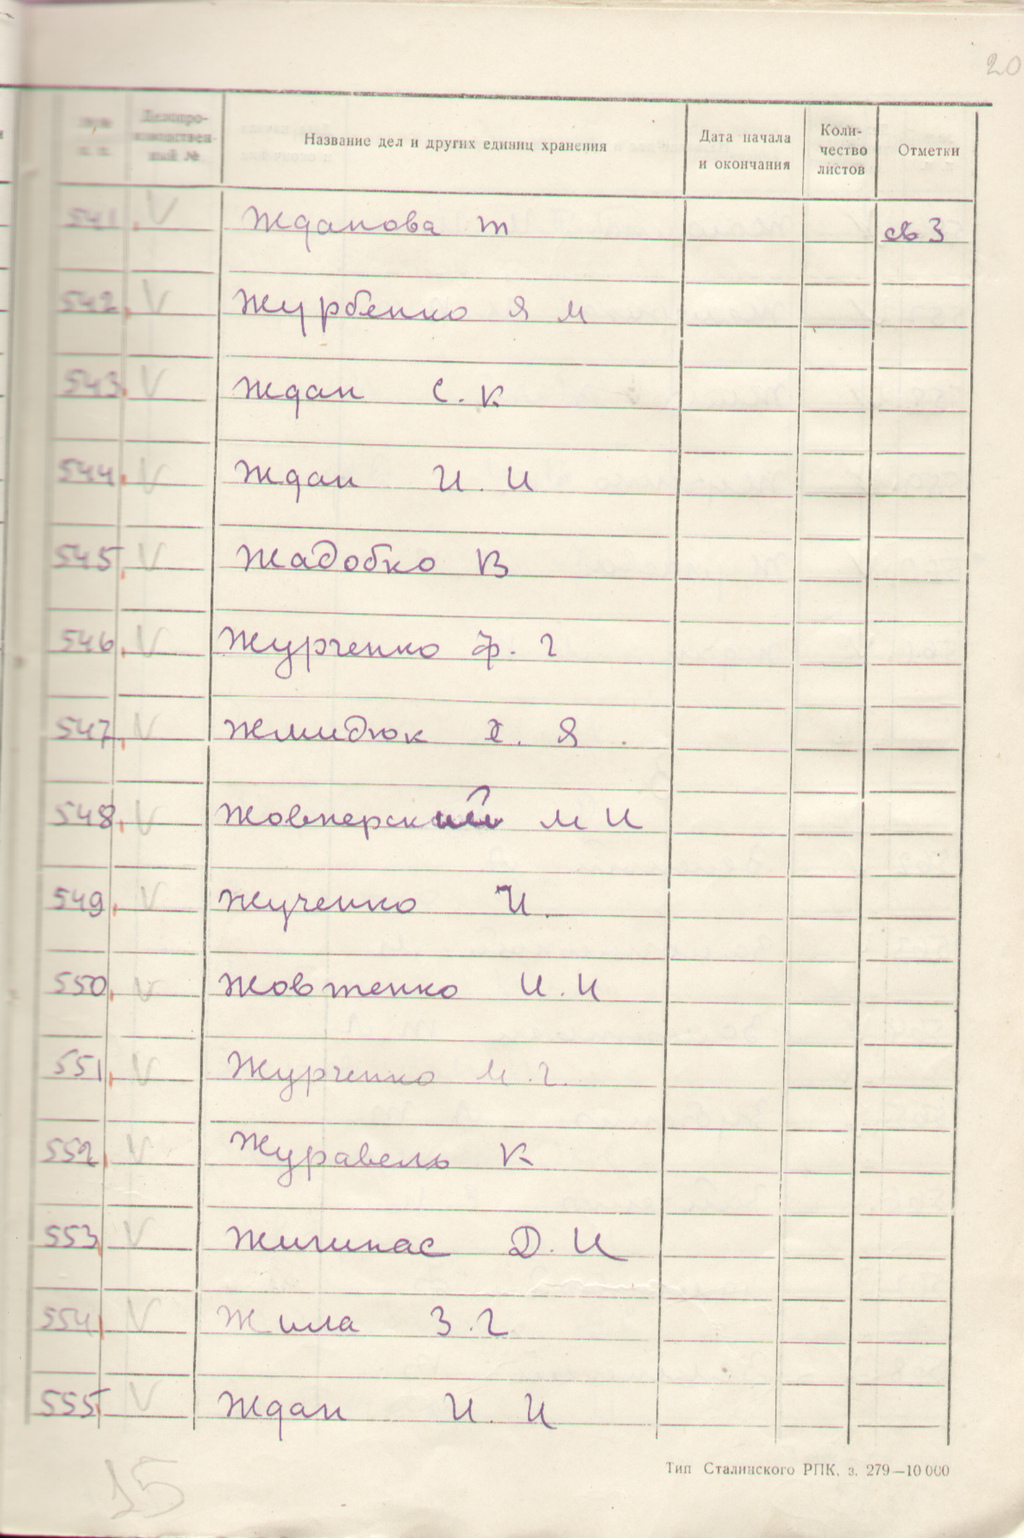 20
№№ п. п. Делопро-изводствен-ный № Название дел и других единиц хранения Дата начала и окончания Коли-чество листов Отметки
541. V Жданова Т св 3
542. V Журбенко Я М
543. V Ждан С. К
544. V Ждан И. И
545. V Жадобко В
546. V Журченко Ф. Г
547. V Жмидюк Х. Я.
548. V Жовнерский М И
549. V Жученко И.
550. V Жовтенко И. И
551. V Журченко М. Г.
552. V Журавель К
553. V Жигинас Д. И
554. V Жила З. Г
555. V Ждан И. И
15
Тип Сталинского РПК, з. 279—10 000